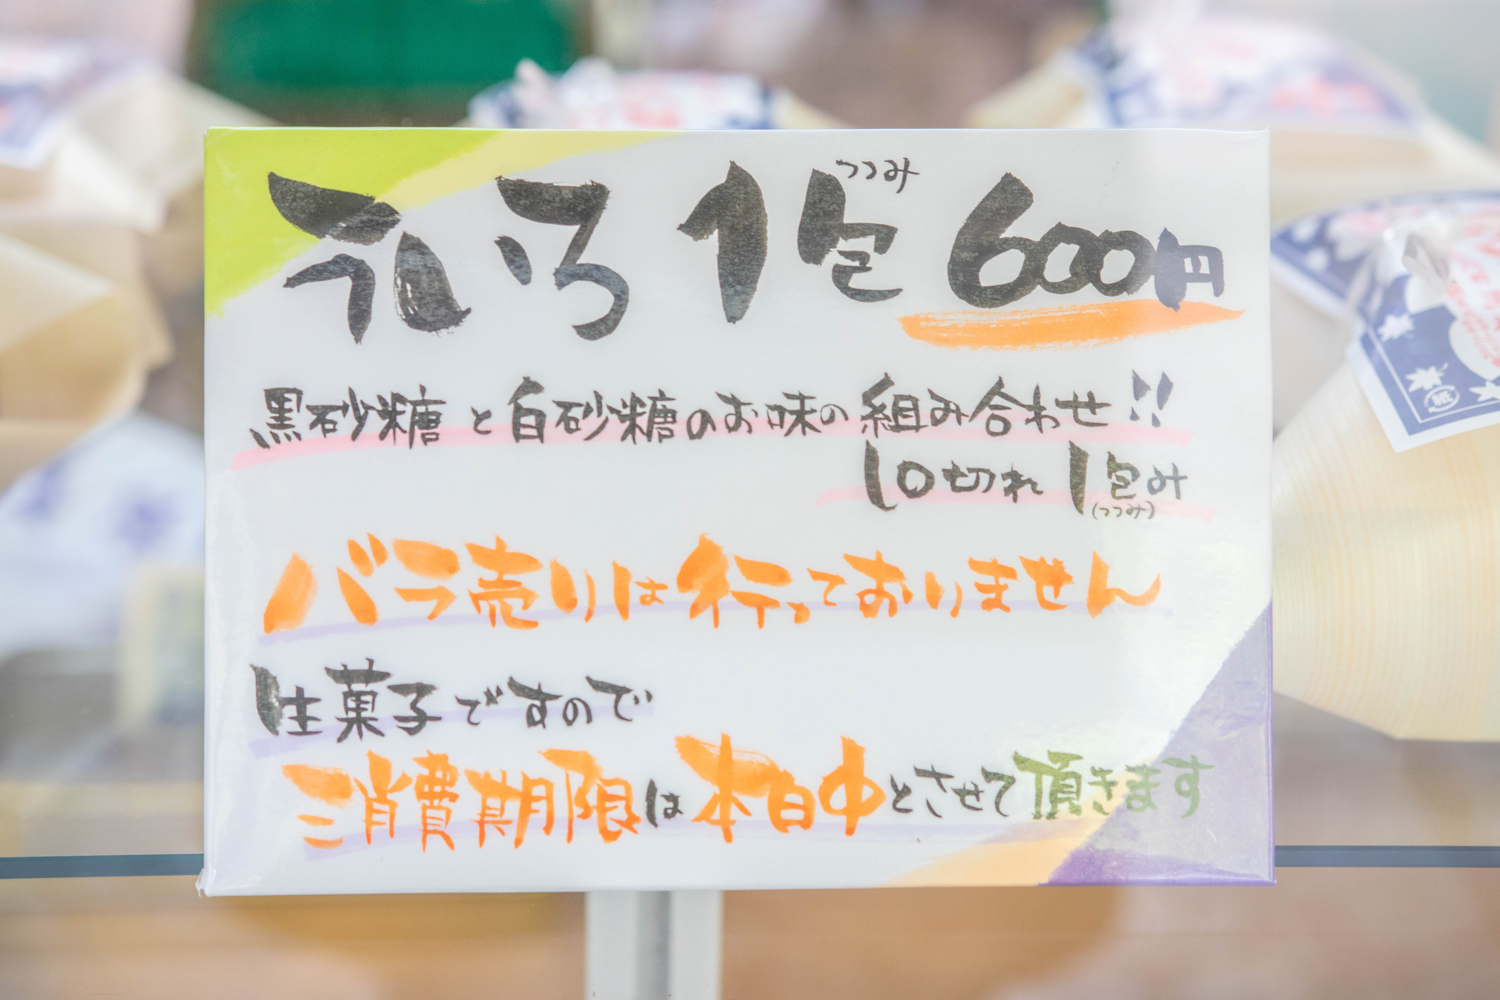 ういろ 1包 600円
つつみ
黒砂糖と白砂糖のお味の組み合わせ!!
10切れ 1包み
(つつみ)
バラ売りは行っておりません
生菓子ですので
消費期限は本日中とさせて頂きます